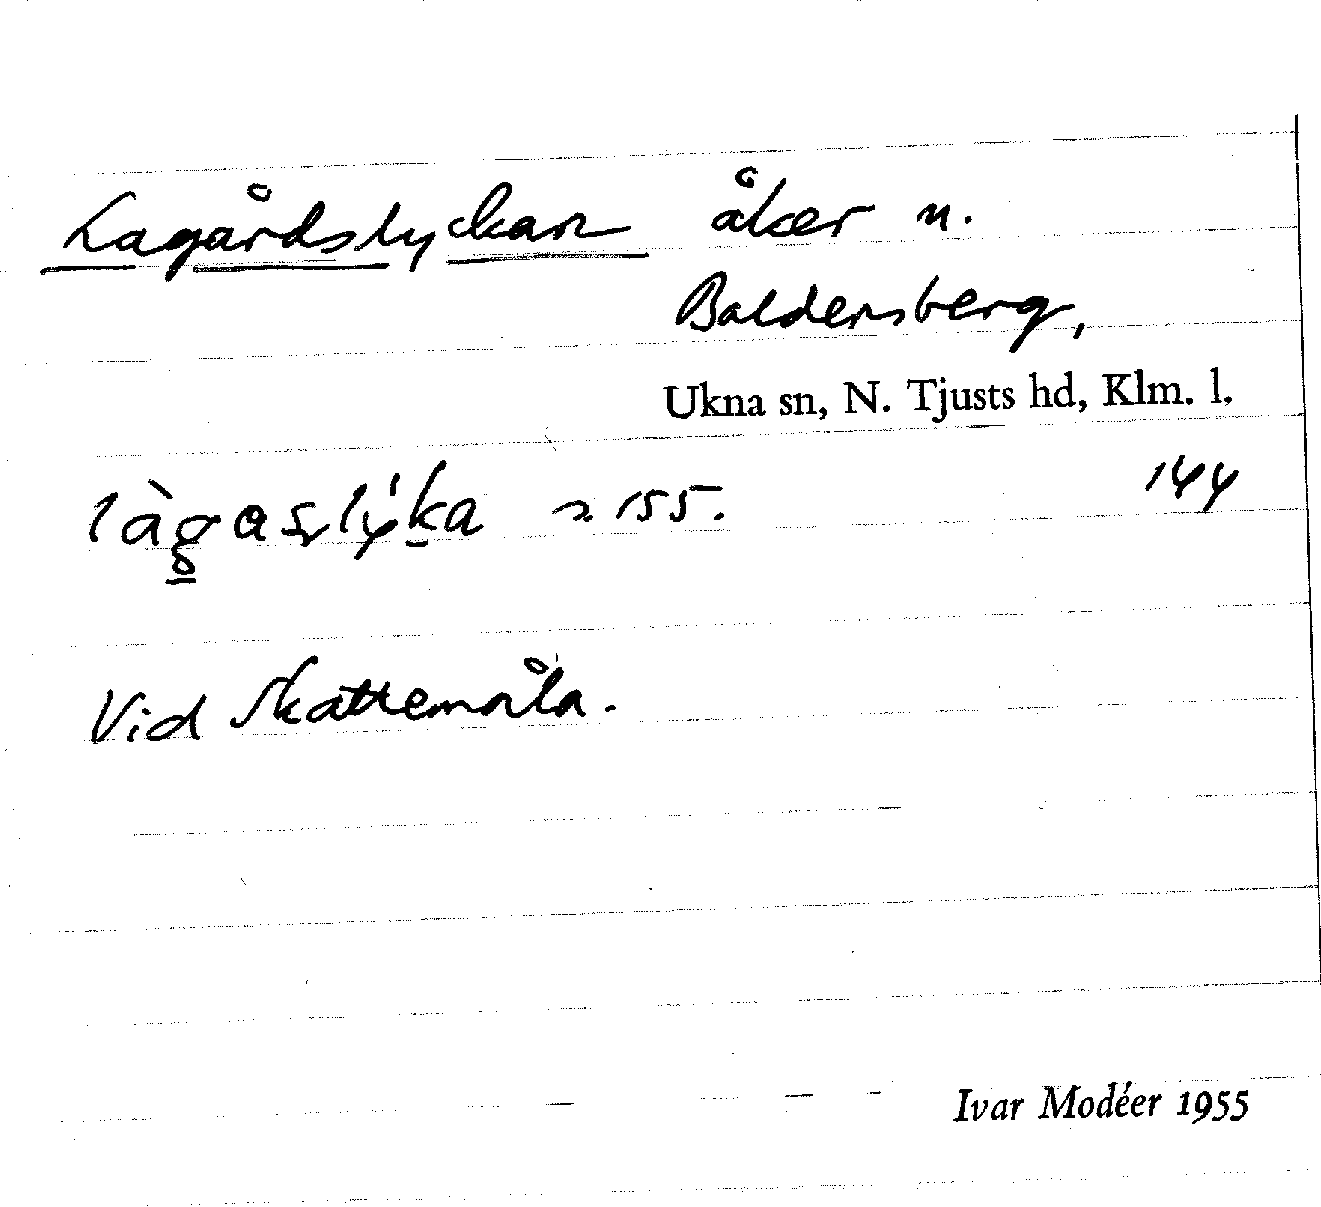 Lagårdslyckan åker n.
Baldersberg,
Ukna sn, N. Tjusts hd, Klm. l.
làgaslýka 2 155. 144
Vid Skattemåla.
Ivar Modéer 1955